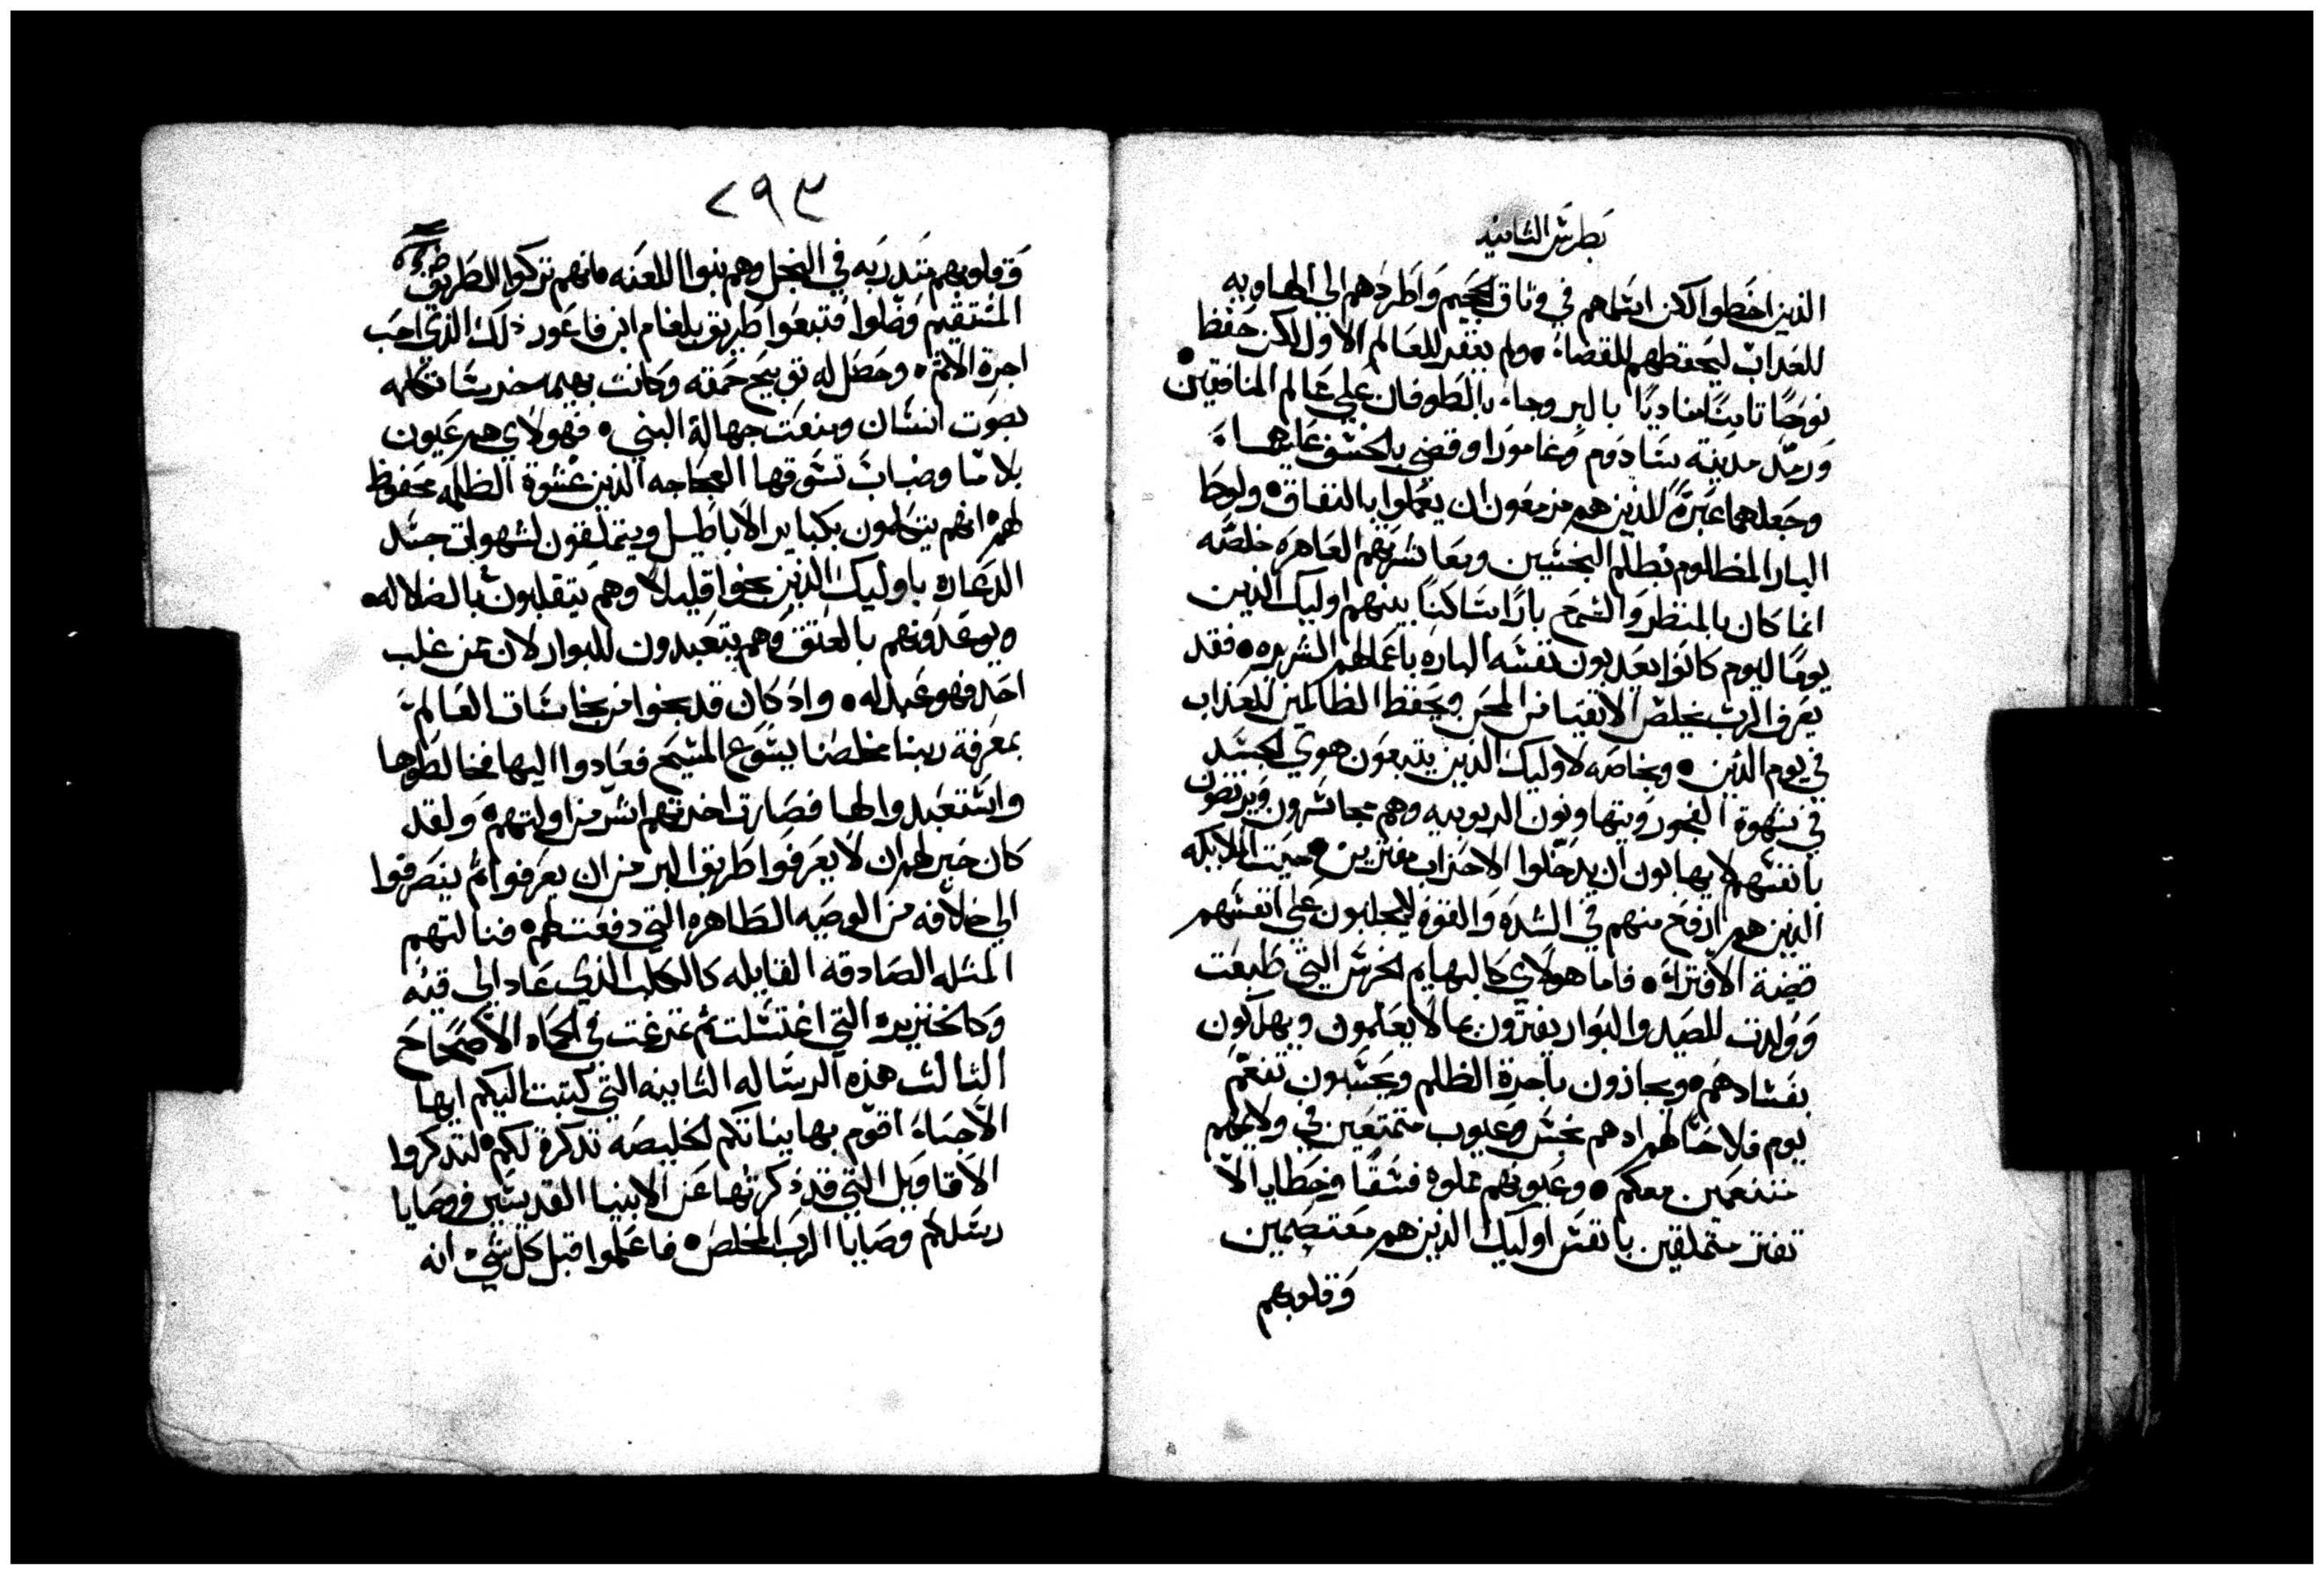 بطرس الثانيه
الذين اخطوا لكن ابتلاهم في وثاق الجحيم واطردهم الي الهاويه
للعذاب ليحفظهم للقضاء • ولم يغفر للعالم الاول لكن حفظ
نوحًا ثامنًا مناديًا بالبر وجاء بالطوفان علي عالم المنافقين •
ورمّد مدينة سادوم وغامورا وقضي بالخسف عليهما
وجعلهما عبرةً للذين هم مزمعون ان يعملوا بالنفاق • ولوطا
البار المظلوم بظلم النجسين ومعاشرتهم العاهره خلصه
انما كان بالمنظر والسمع بارًا ساكنًا بينهم اوليك الذين
يومًا ليوم كانوا يعذبون نفسه الباره باعمالهم الشريره • فقد
يعرف الرب يخلص الاتقيا من المحن ويحفظ الظالمين للعذاب
في يوم الدين • وبخاصه لاوليك الذين يتبعون هوي الجسد
في شهوة الفجور ويتهاونون الربوبيه وهم متجاسرون ويرتضون
بانفسهم لا يهابون ان يدخلوا الاحزاب مفترين • حيث الملايكه
الذين هم ارفع منهم في الشده والقوه لا يجلبون علي انفسهم
قضية الافتراء • فاما هولاي كالبهايم الخرس التي طبعت
وولدت للصيد والبوار يفترون بما لا يعلمون ويهلكون
بفسادهم • ويجازون باجرة الظلم ويحسبون تنعّم
يوم فلاحًا لهم ادهم نجس وعيوب متمتعين في ولايمهم
متنعمين معكم • وعيونهم مملوه فسقًا وخطايا لا
تفتر متملقين بانفس اوليك الذين هم معتصمين
وقلوبهم
٢٩٣
وقلوبهم متدربه في البخل وهم بنوا اللعنه فانهم تركوا الطريق
المستقيم وضلوا فتبعوا طريق بلعام ابن فاعور ذلك الذي احب
اجرة الاثم • وحصل له توبيخ حمقه وكانت بهيمه خرسا تكلمه
بصوت انسان ومنعت جهالة النبي • فهولاي هم عيون
بلا ما وضباب تسوقها العجاجه الذين عشوة الظلمه محفوظ
لهم • انهم يتكلمون بكباير الاباطيل ويتملقون لشهوات جسد
الدعاره باوليك الذين نجوا قليلا وهم يتقلبون بالضلاله •
ويوعدونهم بالعتق وهم يتعبدون للبوار لان من غلب
احد فهو عبد له • واذ كان قد نجوا من نجاسات العالم
بمعرفة ربنا مخلصنا يسوع المسيح فعادوا اليها فخالطوها
واستعبدوا لها فصارت اخرتهم اشر من اولتهم • ولقد
كان خير لهم ان لا يعرفوا طريق البر من ان يعرفوا ثم ينصرفوا
الي خلافه من الوصيه الطاهره التي دفعت لهم • فنالتهم
المثله الصادقه القايله كالكلب الذي عاد الي قيئه
وكالخنزيره التي اغتسلت ثم تمرغت في الحماه الاصحاح
الثالث هذه الرساله الثانيه التي كتبت اليكم ايها
الاحباء اقوّم بها نياتكم الخليصه تذكرة لكم • لتذكروا
الاقاويل التي قد ذكرتها عن الانبيا القديسين ووصايا
رسلكم وصايا الرب المخلص • فاعلموا قبل كل شيء انه